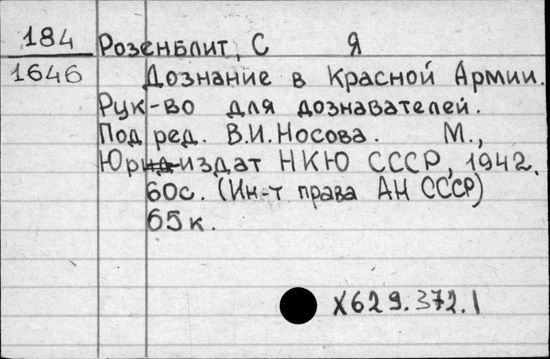 184 Розенблит, С Я
1646 Дознание в Красной Армии.
Рук-во для дознавателей.
Под ред. В.И.Носова. М.,
Юриздат НКЮ СССР, 1942.
60с. (Ин-т права АН СССР)
65к.
X629.372.1